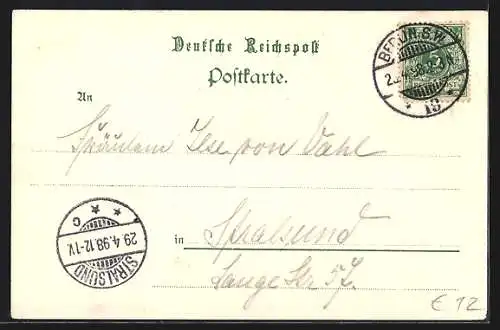 Deutsche Reichspost
Postkarte.
BERLIN, S.W.
13
An
Fräulein Ilse von Vahl
in Stralsund
Lange Str 57.
STRALSUND
29.4.98.12-1V.
C
€ 12